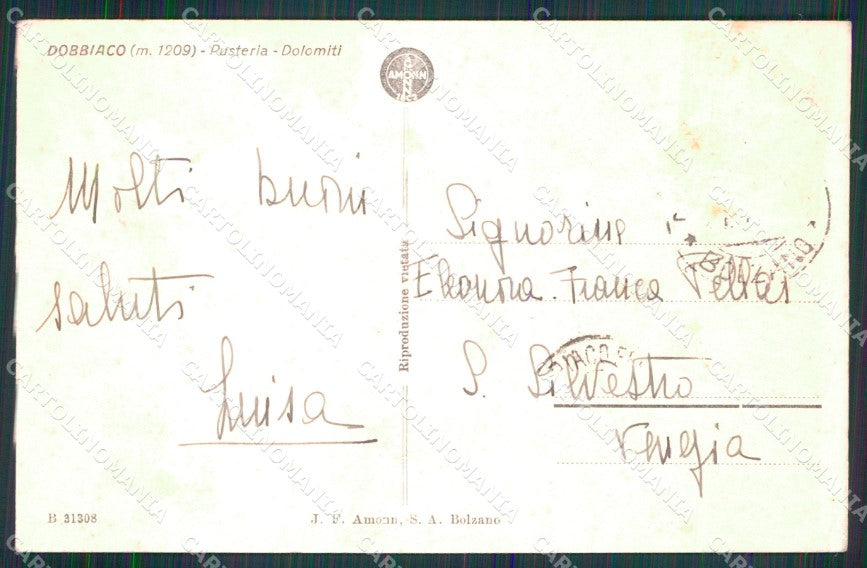 DOBBIACO (m. 1209) - Pusteria - Dolomiti
AMONN
Molti buoni
saluti
Luisa
Riproduzione vietata
Signorine
Eleonora - Franca
S. Silvestro
Venezia
B 31308
J. F. Amonn, S. A. Bolzano
CARTOLINOMANIA